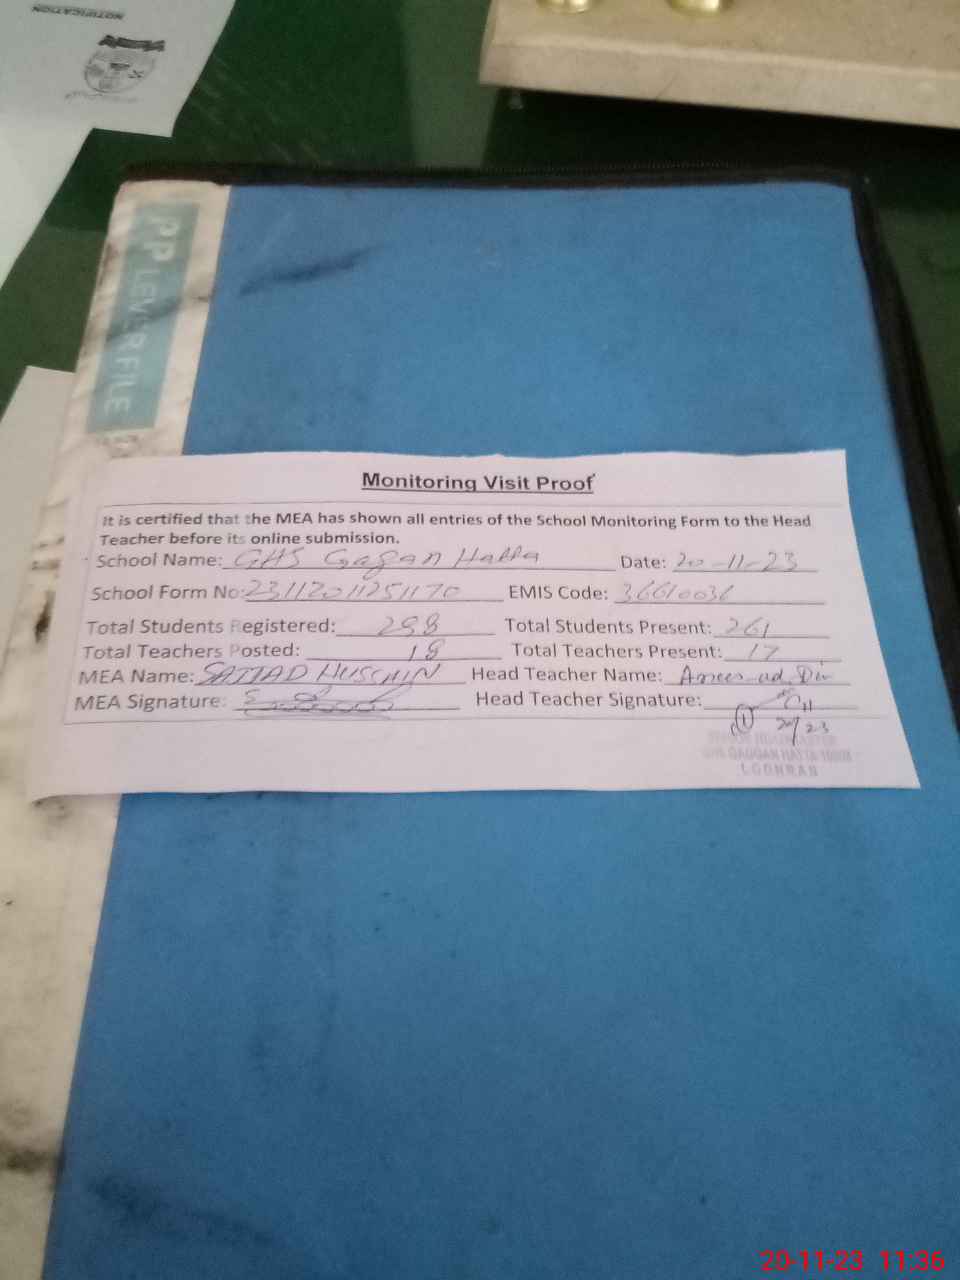 NOTIFICATION
PP LEVER FILE
Monitoring Visit Proof
It is certified that the MEA has shown all entries of the School Monitoring Form to the Head
Teacher before its online submission.
School Name: GHS Gagan Hatta Date: 20-11-23
School Form No: 23112011251170 EMIS Code: 36610036
Total Students Registered: 298 Total Students Present: 261
Total Teachers Posted: 18 Total Teachers Present: 17
MEA Name: SAJJAD HUSSAIN Head Teacher Name: Anees-ud-Din
MEA Signature: Head Teacher Signature:
SENIOR HEADMASTER
GHS GAGGAN HATTA
LODHRAN
20-11-23 11:36